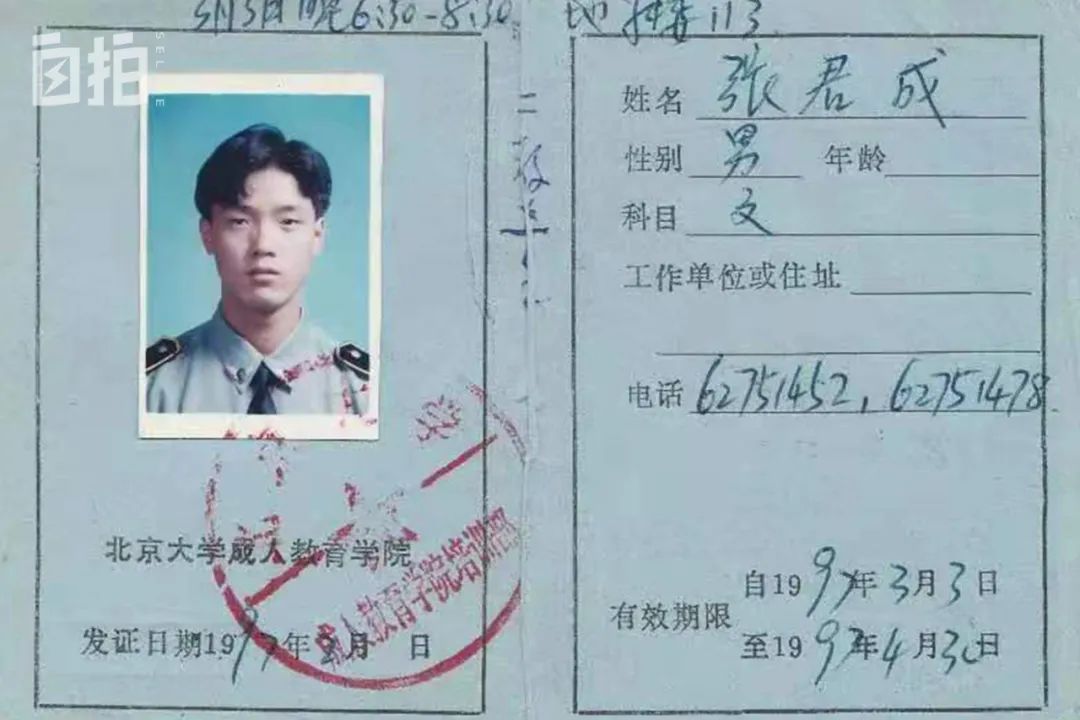 5月3日晚6:30-8:30 地 113
自拍
SELFIE
二
北京大学成人教育学院
成人教育学院培训部
发证日期1997年2月 日
姓名 张君成
性别 男 年龄
科目 文
工作单位或住址
电话 62751452,62751478
有效期限
自1997年3月3日
至1997年4月30日